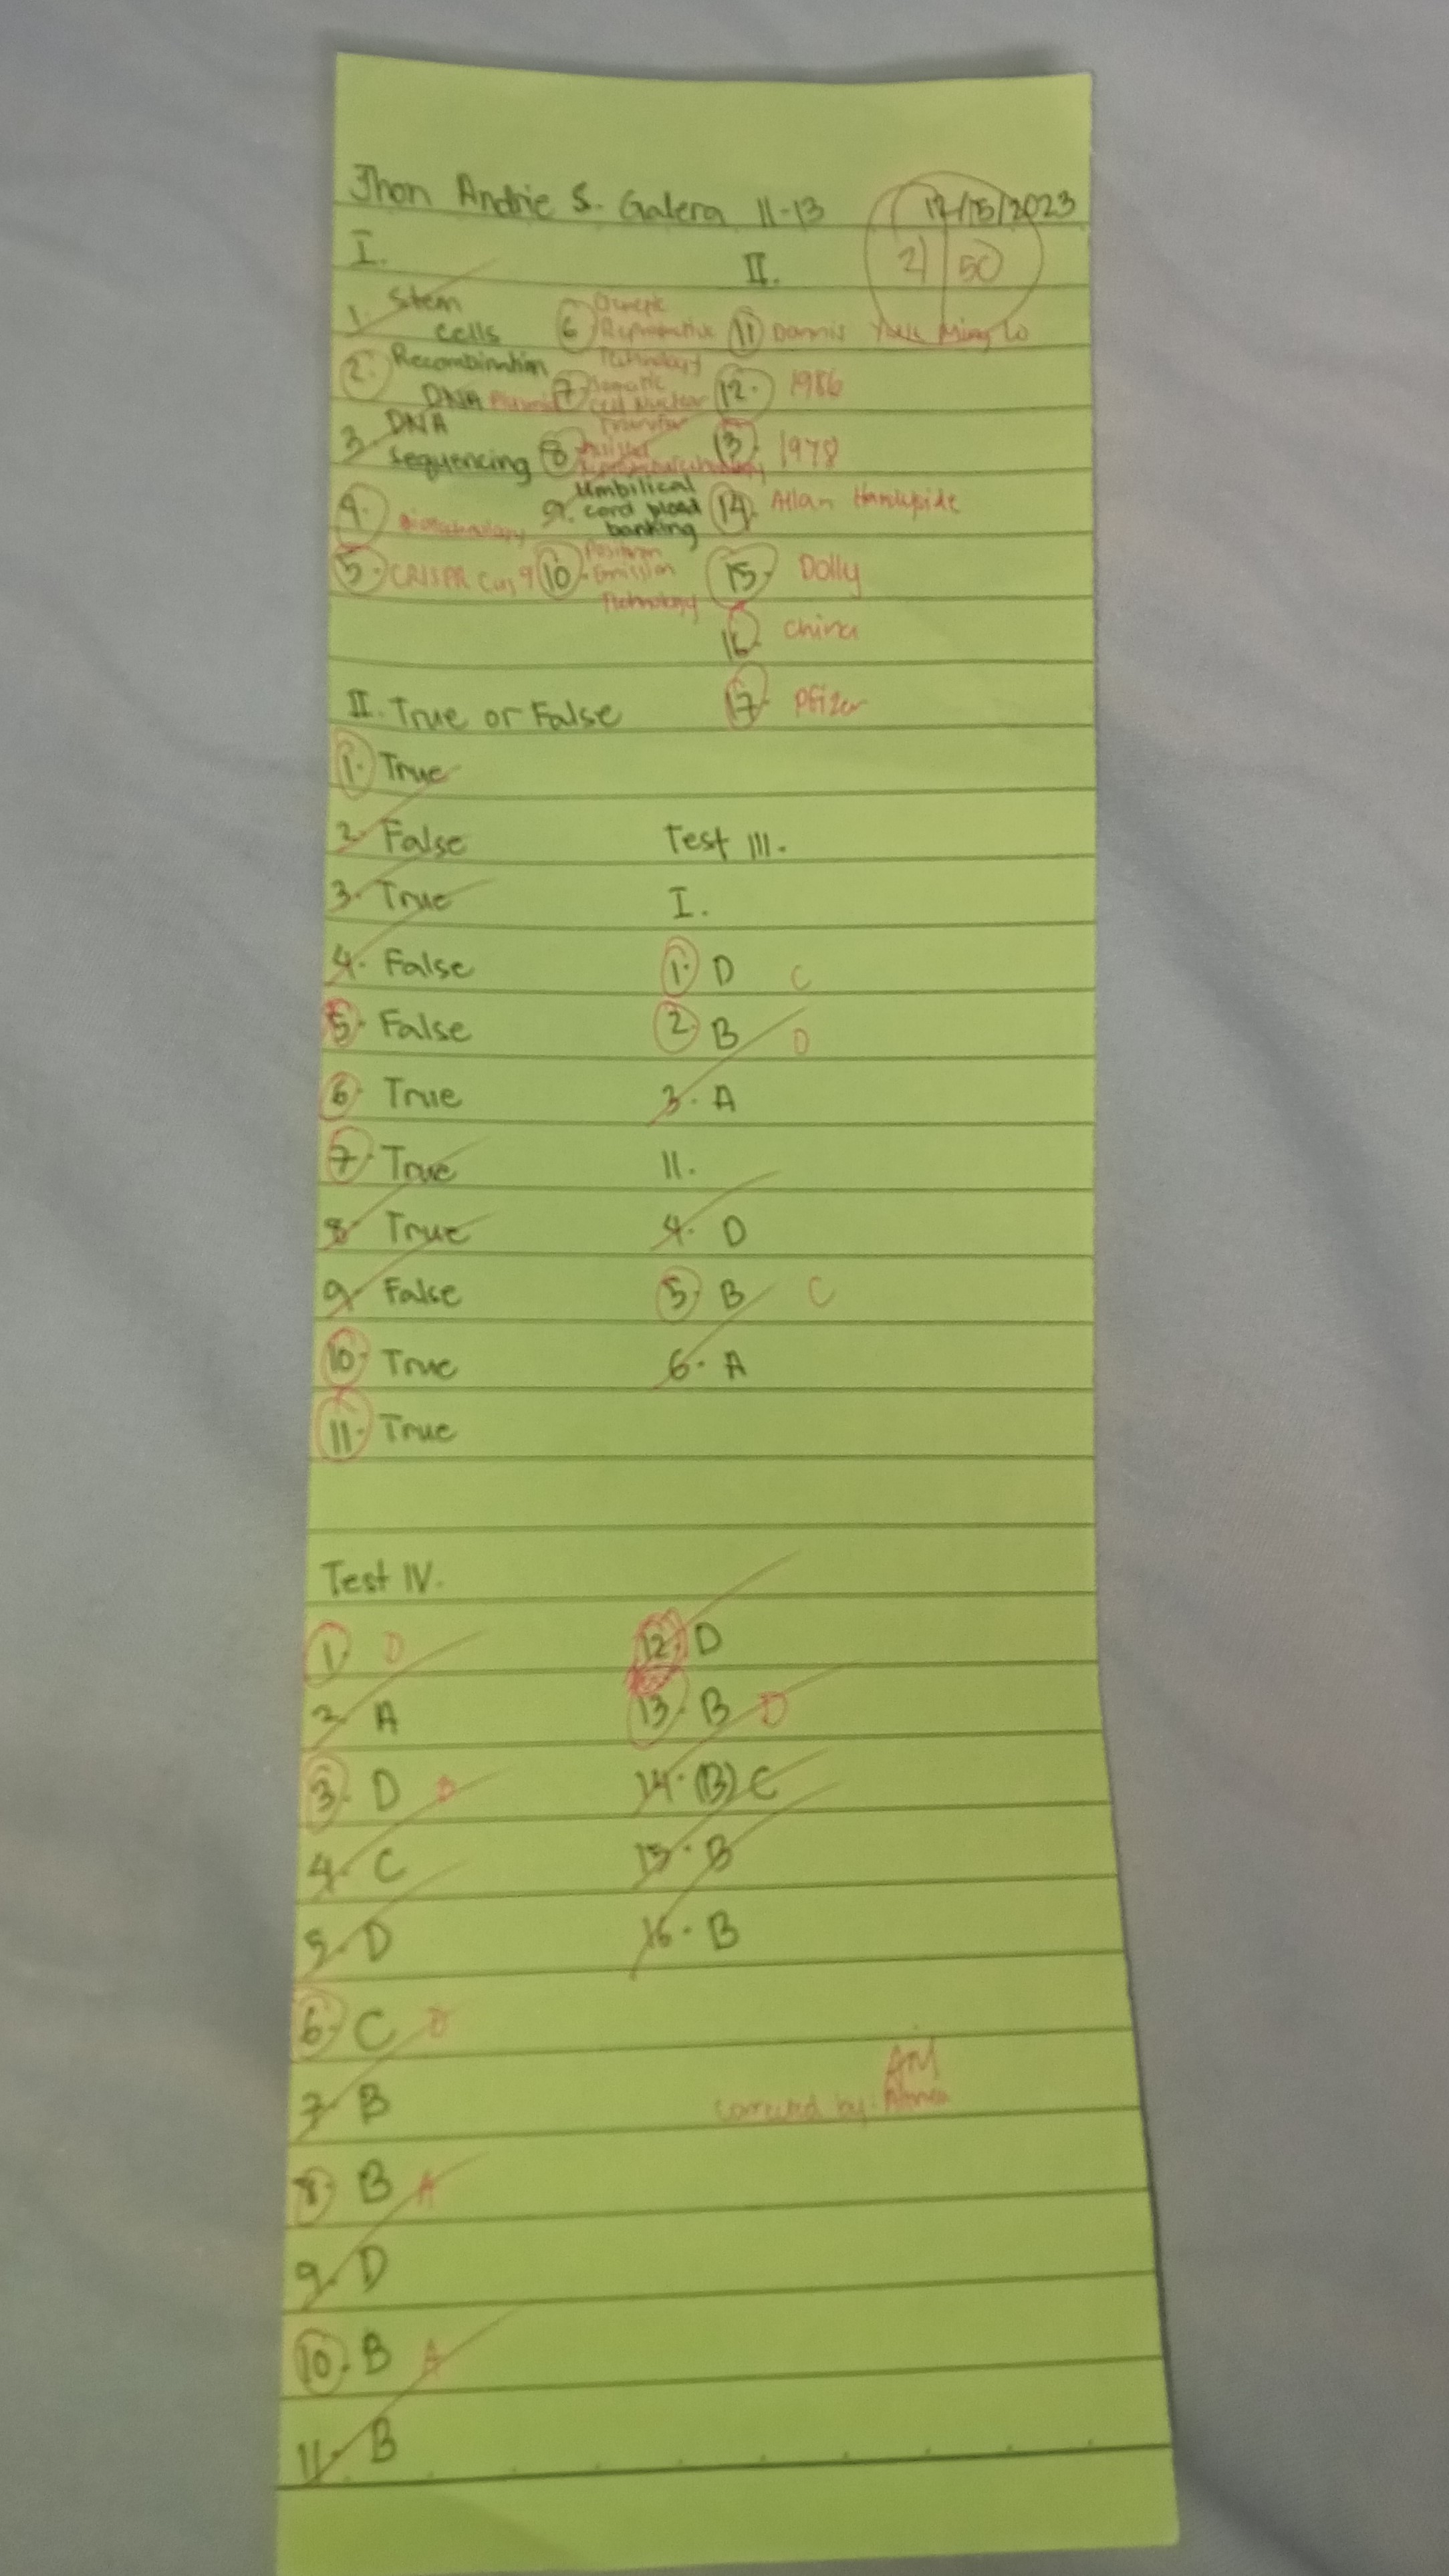 Jhon Andrie S. Galera 11-13 12/15/2023
I. II. 21 50
1. Stem cells
2. Recombination DNA Plasmid
3. DNA sequencing
4. Biotechnology
5. CRISPR Cas 9
6 Reproductive Technology
7 Somatic Cell Nuclear Transfer
8 Assisted
9. Umbilical cord blood banking
10. Positron Emission Technology
11 Dennis Yuk Ming Lo
12. 1986
13. 1978
14. Allan Handyside
15. Dolly
16. China
17. Pfizer
II. True or False
1. True
2. False
3. True
4. False
5. False
6. True
7. True
8. True
9. False
10. True
11. True
Test III.
I.
1. D C
2. B D
3. A
II.
4. D
5. B C
6. A
Test IV.
1. D
2. A
3. D B
4. C
5. D
6. C D
7. B
8. B A
9. D
10. B A
11. B
12. D
13. B D
14. (B) C
15. B
16. B
AM
corrected by: